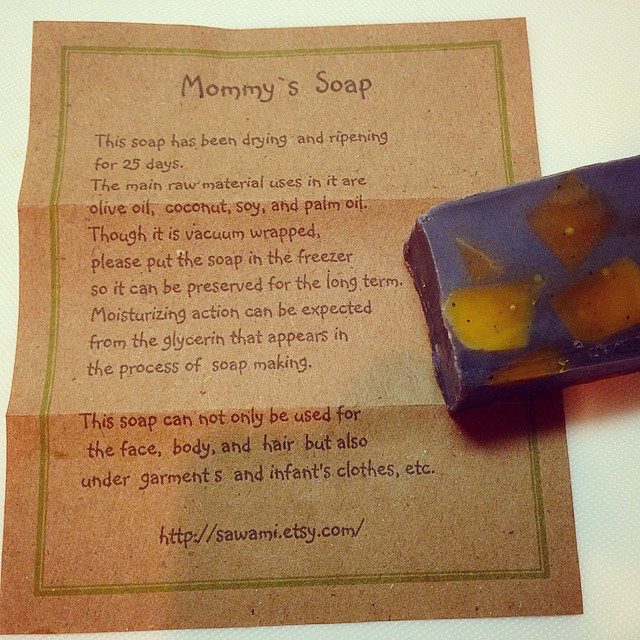 Mommy`s Soap
This soap has been drying and ripening
for 25 days.
The main raw material uses in it are
olive oil, coconut, soy, and palm oil.
Though it is vacuum wrapped,
please put the soap in the freezer
so it can be preserved for the long term.
Moisturizing action can be expected
from the glycerin that appears in
the process of soap making.
This soap can not only be used for
the face, body, and hair but also
under garment s and infant's clothes, etc.
http://sawami.etsy.com/